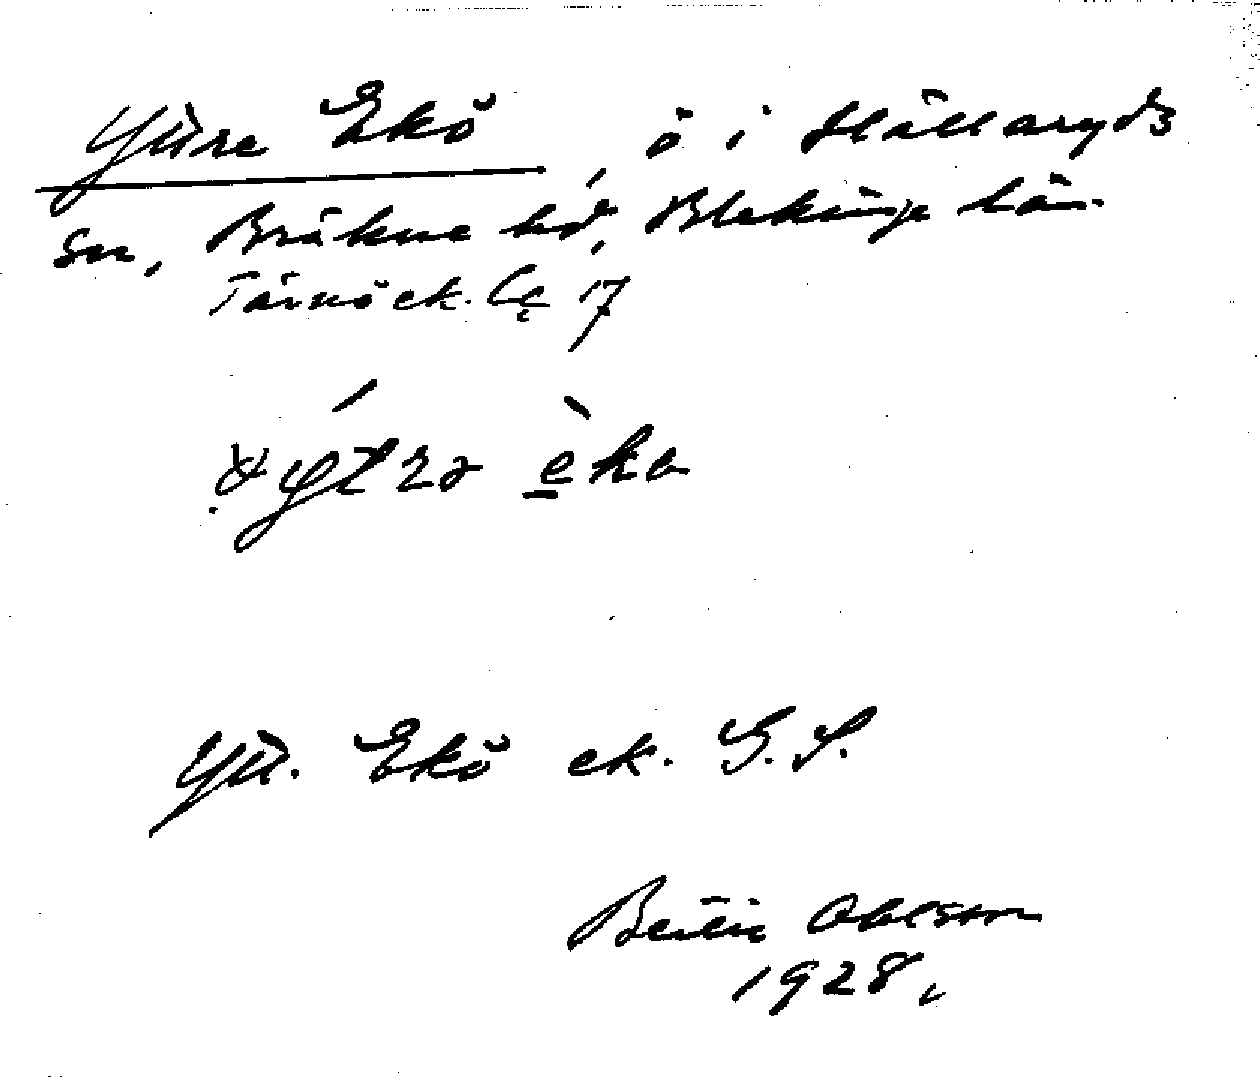 Yttre Ekö, ö i Hällaryds
sn, Bräkne hd, Blekinge län.
Tärnö ek.
Ytt. Ekö ek. G.S.
Bertil Ohlsson
1928.